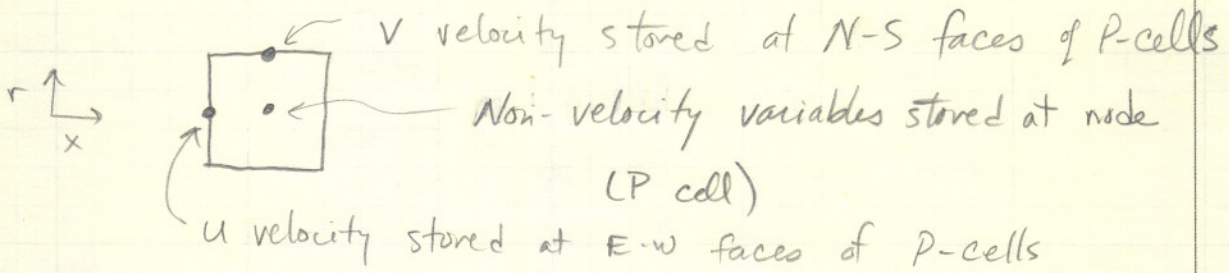 V velocity stored at N-S faces of P-cells
r
x
Non-velocity variables stored at node
(P cell)
u velocity stored at E-W faces of P-cells